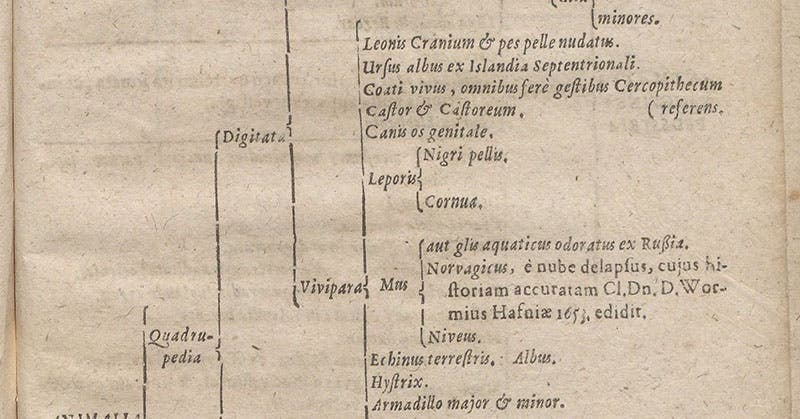 minores.
Leonis Cranium & pes pelle nudatus.
Ursus albus ex Islandia Septentrionali.
Coati vivus, omnibus ferè gestibus Cercopithecum
Castor & Castoreum. ( referens.
Digitata
Canis os genitale.
Nigri pellis.
Leporis
Cornua.
aut glis aquaticus odoratus ex Rußia.
Norvagicus, è nube delapsus, cujus hi-
Vivipara Mus
storiam accuratam Cl. Dn. D. Wor-
mius Hafniæ 1653. edidit.
Niveus.
Quadru-
pedia
Echinus terrestris. Albus.
Hystrix.
Armadillo major & minor.